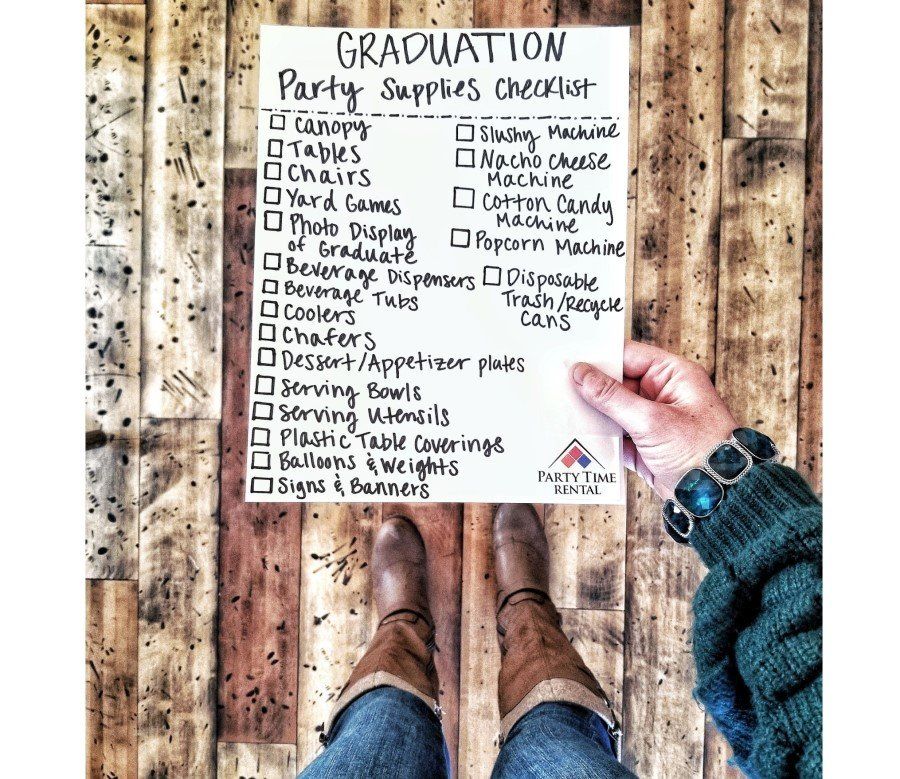 GRADUATION
Party Supplies Checklist
Canopy
Tables
Chairs
Yard Games
Photo Display
of Graduate
Beverage Dispensers
Beverage Tubs
Coolers
Chafers
Dessert/Appetizer plates
Serving Bowls
Serving Utensils
Plastic Table Coverings
Balloons & Weights
Signs & Banners
Slushy Machine
Nacho Cheese
Machine
Cotton Candy
Machine
Popcorn Machine
Disposable
Trash/Recycle
Cans
PARTY TIME
RENTAL